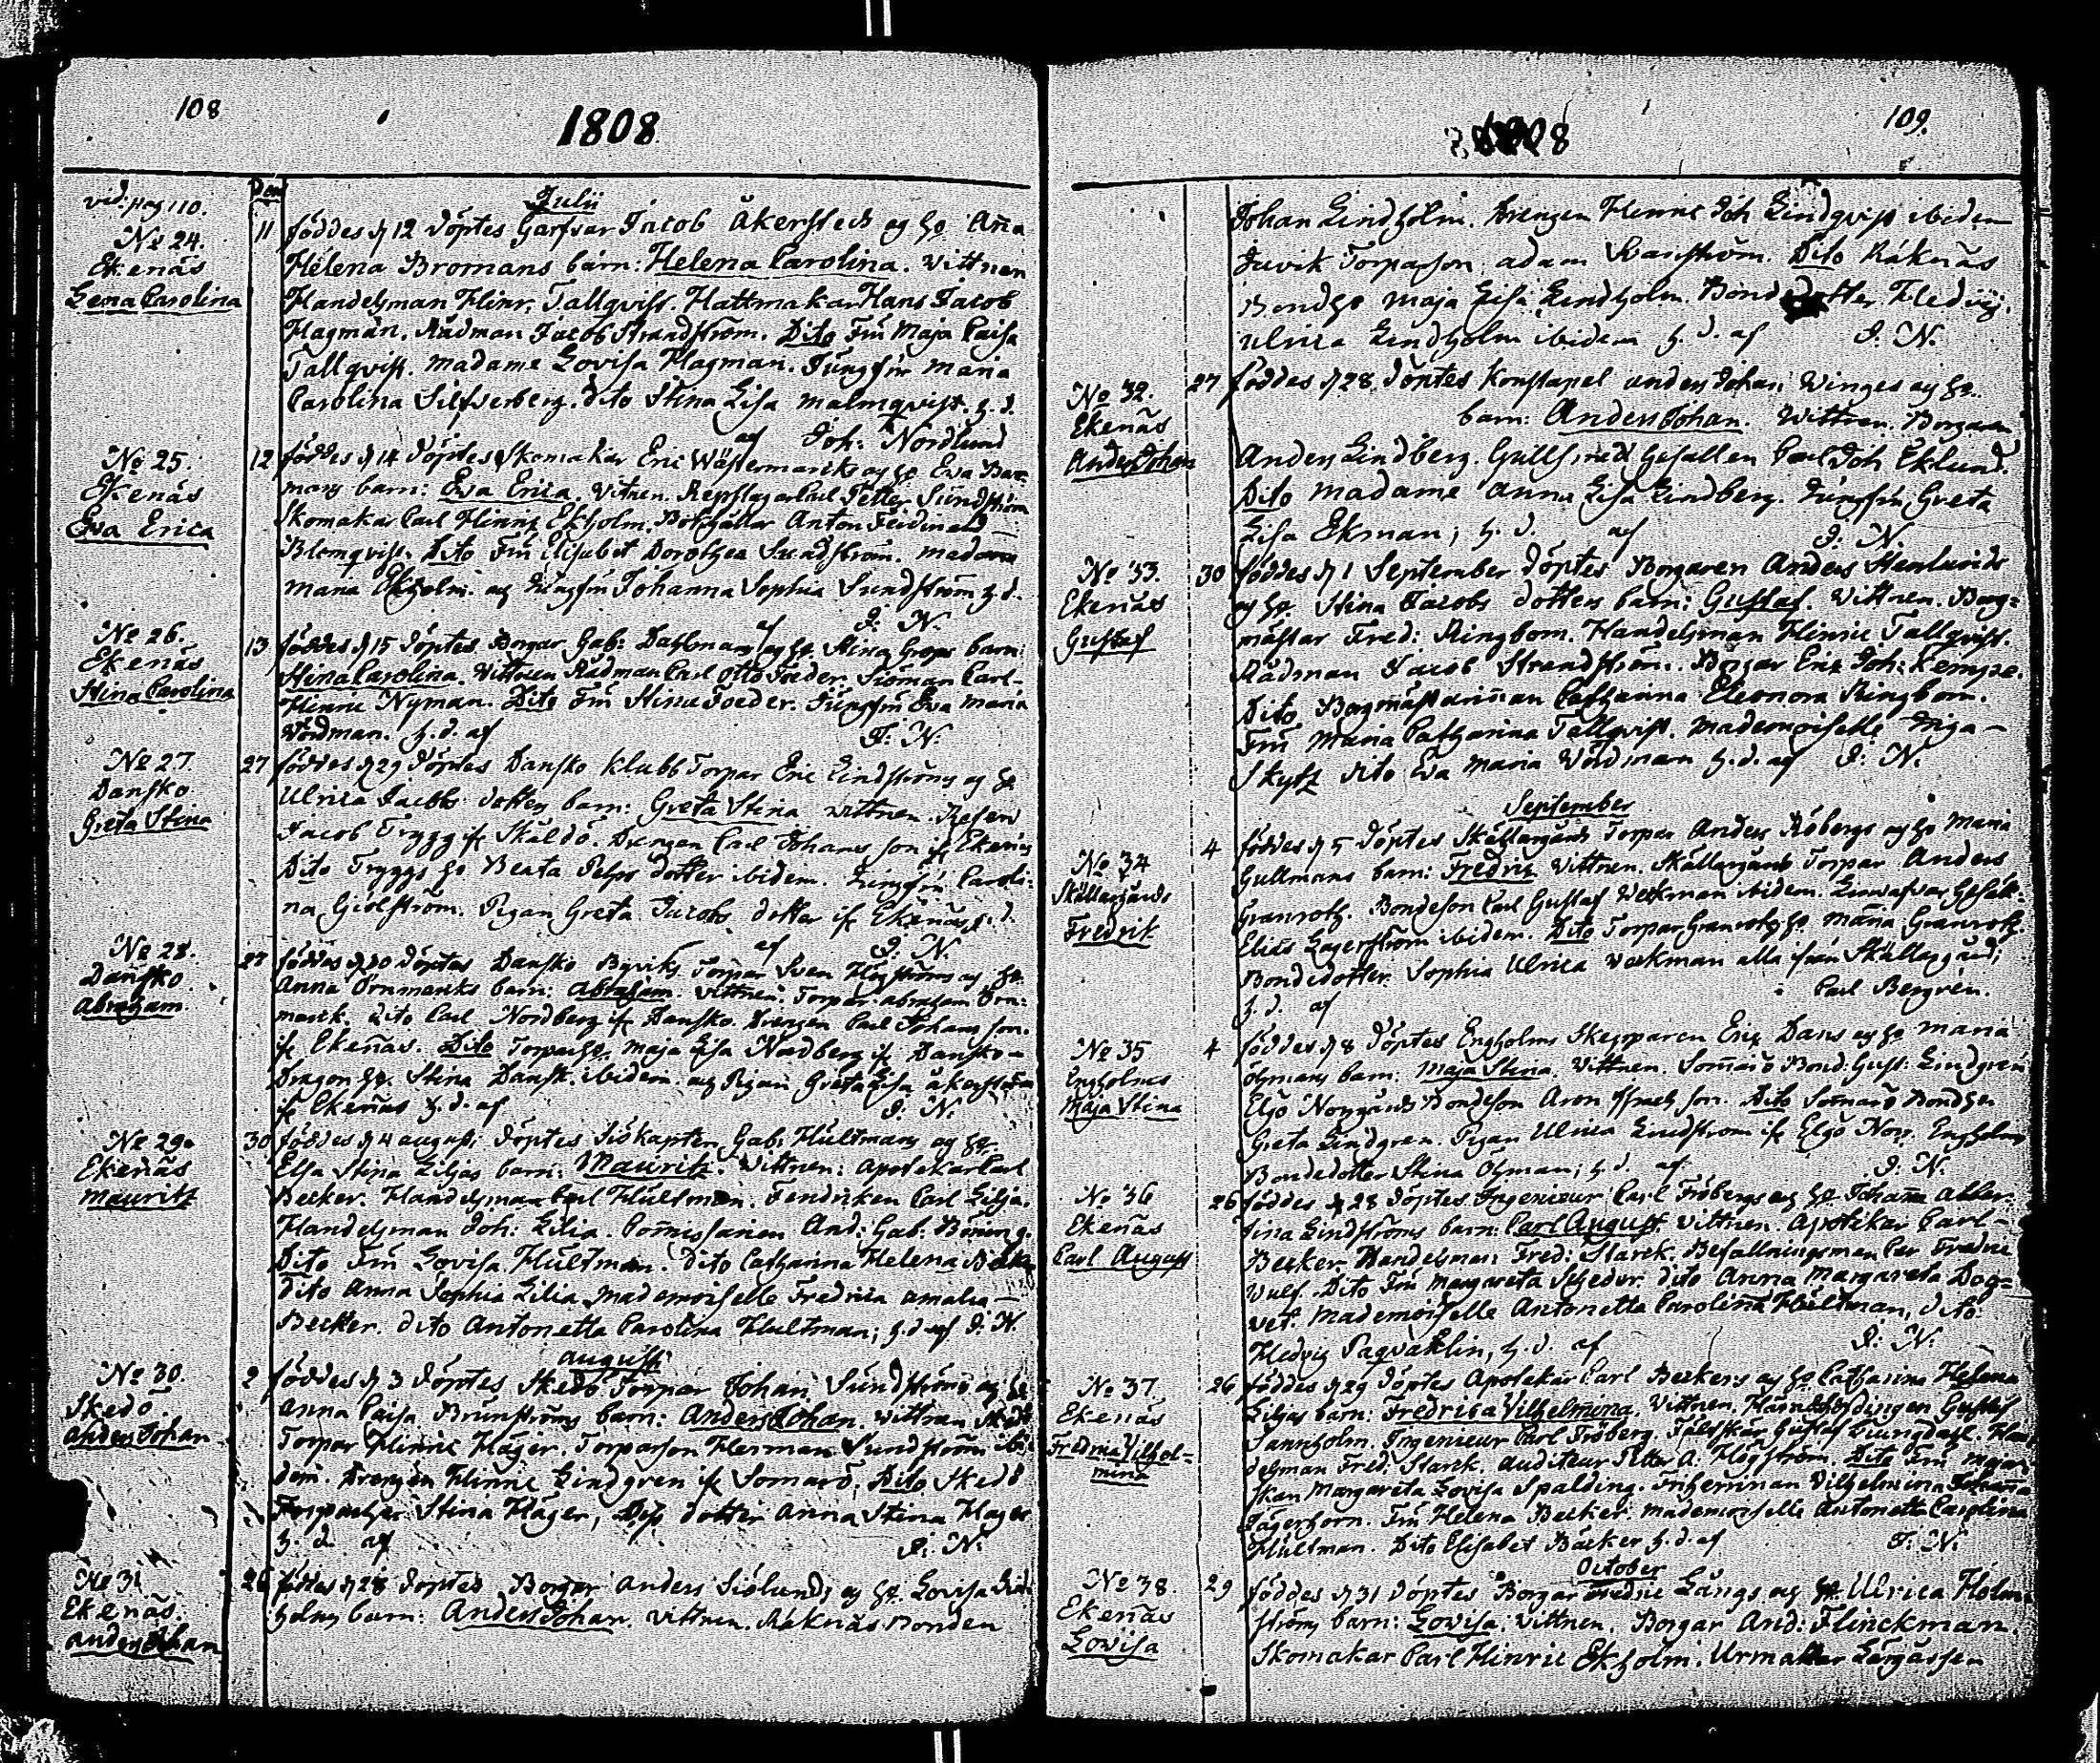 108
1808
Den
Julii
vid. pag 110.
No 24.
Ekenäs
Lena Carolina
11 föddes d 12 döptes Garfvar Jacob Åkerstedts og h. Aña
Helena Bromans barn: Helena Carolina. Vittnen
Handelsman Hinr. Tallqvist. Hattmakar Hans Jacob
Hagman. Rådman Jacob Strandström. Dito Fru Maja Caisa
Tallqvist. Madame Lovisa Hagman. Jungfru Maria
Carolina Silfverberg. Dito Stina Lisa Malmqvist. h. d.
af Joh: Nordlund
No 25.
Ekenäs
Eva Erica
12 föddes d 14 döptes Skomakar Eric Wästermarcks og h. Eva
barn: Eva Erica. Vitnen. Repslagar Carl Petter Sundström
Skomakar Carl Hinric Ekholm. Anton Ferdinand
Blomqvist. Dito Fru Elisabet Dorothea Sundström. Madame
Maria Ekholm. og Jungfru Johanna Sophia Sundström h. d.
af J. N.
No 26.
Ekenäs
Stina Carolina
13 föddes d 15 döptes Borgar Gab: og h. Stina barn:
Stina Carolina. Vittnen Rådman Carl Otto Foeder. Siöman Carl
Hinric Nyman. Dito Fru Stina Foeder. Jungfru Eva Maria
Wördman. h. d. af J. N.
No 27.
Dansko
Greta Stina
27 föddes d 29 döptes Dansko Klubb Torpar Eric Lindströms og h.
Ulrica Jacobs dotters barn: Greta Stina Vittnen.
Jacob Trygg if Skåldö. Drengen Carl Johans son if Ekenäs
Dito Tryggs h. Beata dotter ibidem. Jungfru Caroli-
na Giölström. Pigan Greta Jacobs dotter if Ekenäs, h. d.
af J. N.
No 28.
Dansko
Abraham.
27 föddes d 30 döptes Dansko Byviks Torpar Sven Högströms og h.
Anna Örnmarcks barn: Abraham. Vittnen: Torpar Abraham Örn-
marck. Dito Carl Nordberg if Dansko. Drengen Carl Johans son.
if Ekenäs. Dito Torparh. Maja Lisa Nordberg if Dansko
Dragon h. Stina Dansk. ibidem. og Pigan Greta Lisa Åkerström
if Ekenäs h. d. af J. N.
No 29.
Ekenäs
Mauritz
30 föddes d 4 August. döptes Siökapten Gab: Hultmans og h.
Elsa Stina Liljas barn: Mauritz. Vittnen: Apotekar Carl
Becker. Handelsman Carl Hultman. Fendriken Carl Lilja.
Handelsman Joh: Lilia. Comissarien And: Gab:
Dito Fru Lovisa Hultman. Dito Catharina Helena
dito Anna Sophia Lilia Mademoiselle Fredrica Amalia
Becker. dito Antonetta Carolina Hultman; h. d. af J. N.
Augusti
No 30.
Skedö.
Anders Johan
2 föddes d 3 döptes Skedö Torpar Johan Sundströms og h.
Anna Caisa Brunströms barn: Anders Johan. Vittnen Skedö
Torpar Hinric Häger. Torparson Herman Sundström ibi-
dem. Drengen Hinric Lindgren if Somarö. Dito Skedö
Torparhr Stina Häger, Dess dotter Anna Stina Häger
h. d. af J. N.
No 31
Ekenäs.
Anders Johan
26 föddes d 28 döptes Borgar Anders Siölunds og h. Lovisa Lind-
holms barn: Anders Johan. Vittnen. Råknäs Bonden
109.
1808
Johan Lindholm. Drengen Hinric Joh Lindqvist ibidem
Torparson Adam. Dito Råknäs
Bondh Maja Lisa Lindholm. Bondedotter Hedvig
Ulrica Lindholm ibidem h. d. af J. N.
No 32.
Ekenäs
Anders Johan
27 föddes d 28. döptes Konstapel Anders Johan Winges og h.
barn: Anders Johan. Vittnen. Borgaren
Anders Lindberg. Gesällen Carl Joh Eklund.
Dito Madame Anna Lisa Lindberg. Jungfru Greta
Lisa Ekman; h. d. af J. N.
No 33.
Ekenäs
Gustaf
30 föddes d 1 September döptes Borgaren Anders Stenlunds
og h. Stina Jacobs dotters barn: Gustaf. Vittnen. Borg-
mästar Fred: Ringbom. Handelsman Hinric Tallqvist.
Rådman Jacob Strandström. Borgar Eric Joh: Kempe.
Dito Borgmästariñan Catharina Eleonora Ringbom.
Fru Maria Catharina Tallqvist. Mademoiselle Miga
Skytz dito Eva Maria Wördman h. d. af J. N.
September
No 34
Skällargårds
Fredrik
4 föddes d 5 döptes Skällargårds Torpar Anders Röbergs og h. Maria
Gullmans barn: Fredric Vittnen. Skällargårds Torpar Anders
Granroth. Bondeson Carl Gustaf Weckman ibidem.
Elias Lagerström ibidem. Dito Torpar Granroths h. Maria Granroth.
Bondedotter Sophia Ulrica Weckman alla ifrån Skällargård;
h. d. af Carl Bergrén.
No 35
Engholms
Maja Stina
4 föddes d 8 döptes Engholms Skepparen Eric Dans og h. Maria
Öhmans barn: Maja Stina. Vittnen. Somarö Bond: Gust: Lindgren
Elgö Norrgårds Bondeson Aron son. Dito Somarö Bondhr
Greta Lindgren. Pigan Ulrica Lindström if Elgö Norr. Engholms
Bondedotter Stina Öhman; h. d. af J. N.
No 36
Ekenäs
Carl August
26 föddes d 28 döptes Ingenieur Carl Fröbergs og h. Johanna Alber-
tina Lindströms barn: Carl August. Vittnen. Apotekar Carl
Becker. Handelsman Fred: Starck. Befallningsman Per Fredric
Wulf. Dito Fru Margareta dito Anna Margareta
Mademoiselle Antonetta Carolina Hultman, dito
Hedvig h. d. af J. N.
No 37
Ekenäs
Fredrica Vilhel-
mina
26 föddes d 29 döptes Apotekar Carl Beckers og h. Catharina Helena
Liljas barn: Fredrica Vilhelmina. Vittnen. Häradshöfdingen Gustaf
Tannholm. Ingenieur Carl Fröberg. Fältskär Gustaf Liungdahl. Han-
delsman Fred: Starck. Auditeur Petter A: Högström. Dito Fru
Margareta Lovisa Spalding. Friherrinan Vilhelmina Johanna
Jägerhorn. Fru Helena Becker. Mademoiselle Antonetta Carolina
Hultman. Dito Elisabet Bäcker h. d. af J. N.
October
No 38.
Ekenäs
Lovisa
29 föddes d 31 döptes Borgar Fredric Längs og h. Ulrica Holm-
ströms barn: Lovisa. Vittnen. Borgar And: Flinckman.
Skomakar Carl Hinric Ekholm. Urmakar